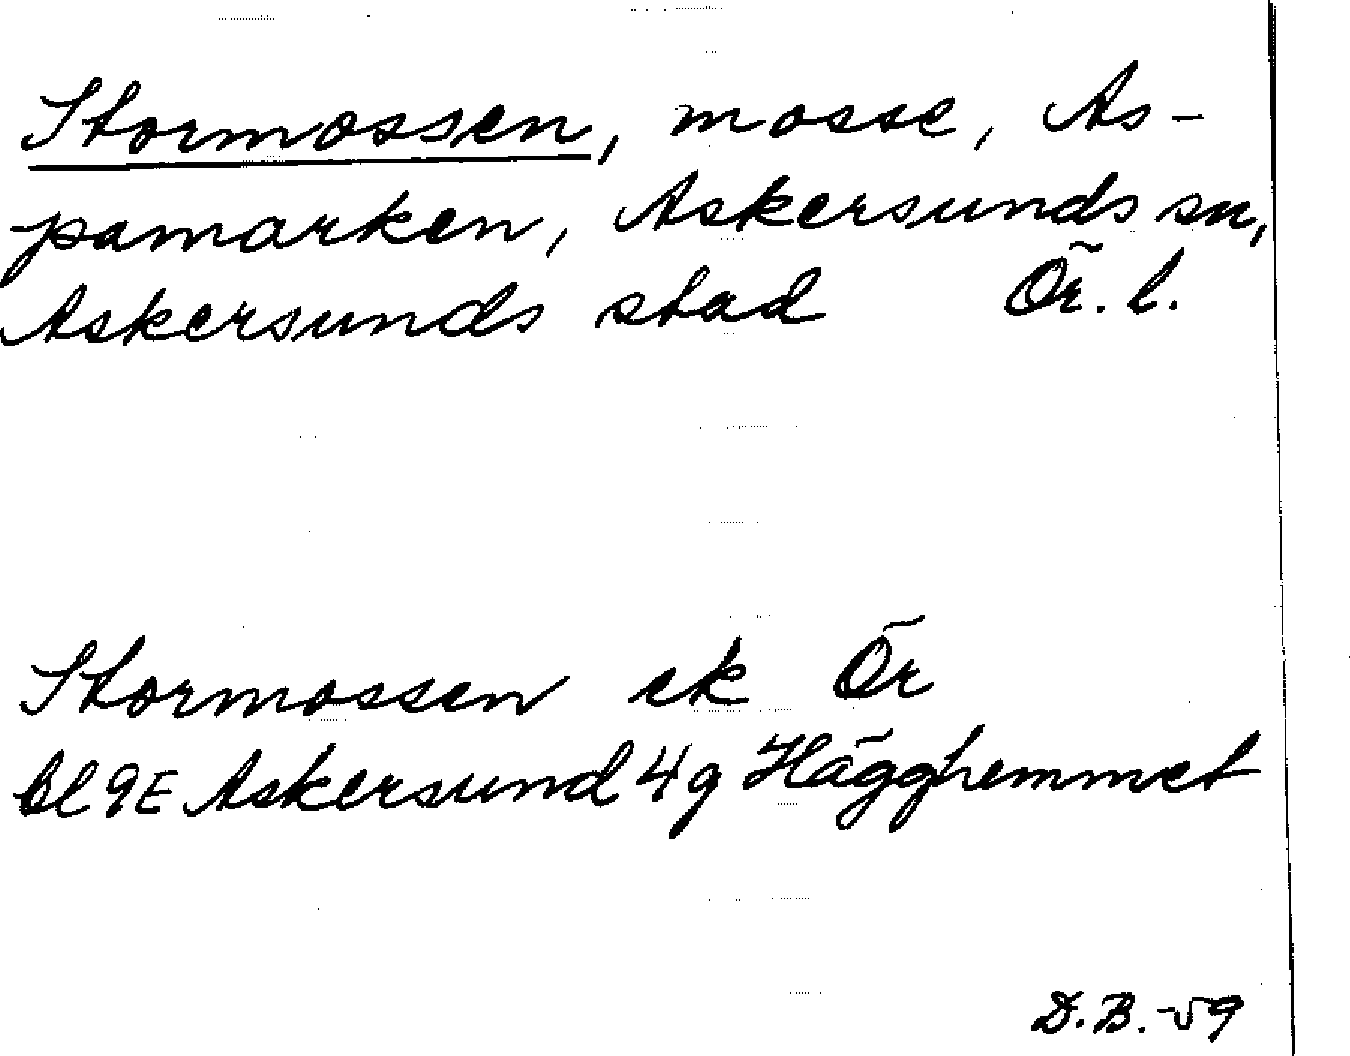 Stormossen, mosse, As-
pamarken, Askersunds sn,
Askersunds stad Ör. l.
Stormossen ek Ör
bl 9E Askersund 4g Hägghemmet
D.B.-59